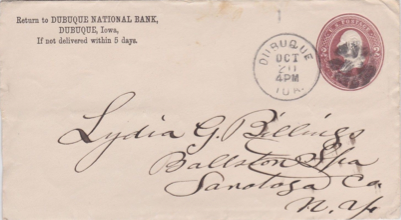 Return to DUBUQUE NATIONAL BANK,
DUBUQUE, Iowa,
If not delivered within 5 days.
DUBUQUE
OCT
20
4PM
IOA.
U.S. POSTAGE
Lydia G. Billings
Ballston Spa
Saratoga Co.
N. Y.